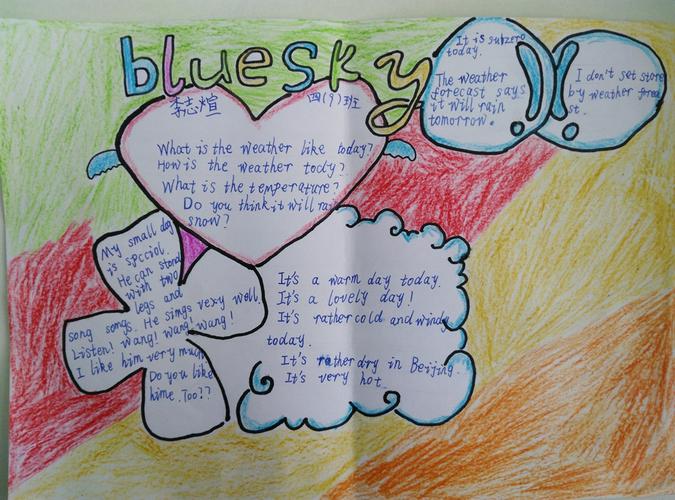 bluesky
李志煊
四(9)班
What is the weather like today?
How is the weather tocly?
What is the temperature?
Do you think it will rain
snow?
It is subzero
today.
The weather
forecast says
it will rain
tomorrow.
I don't set store
by weather forec
st.
My small dog
is special.
He can stand
with two
legs and
song songs. He sings very well.
Listen! wang! wang! wang!
I like him very much
Do you like
hime. Too??
It's a warm day today.
It's a lovely day!
It's rather cold and windy
today.
It's rather dry in Beijing.
It's very hot.